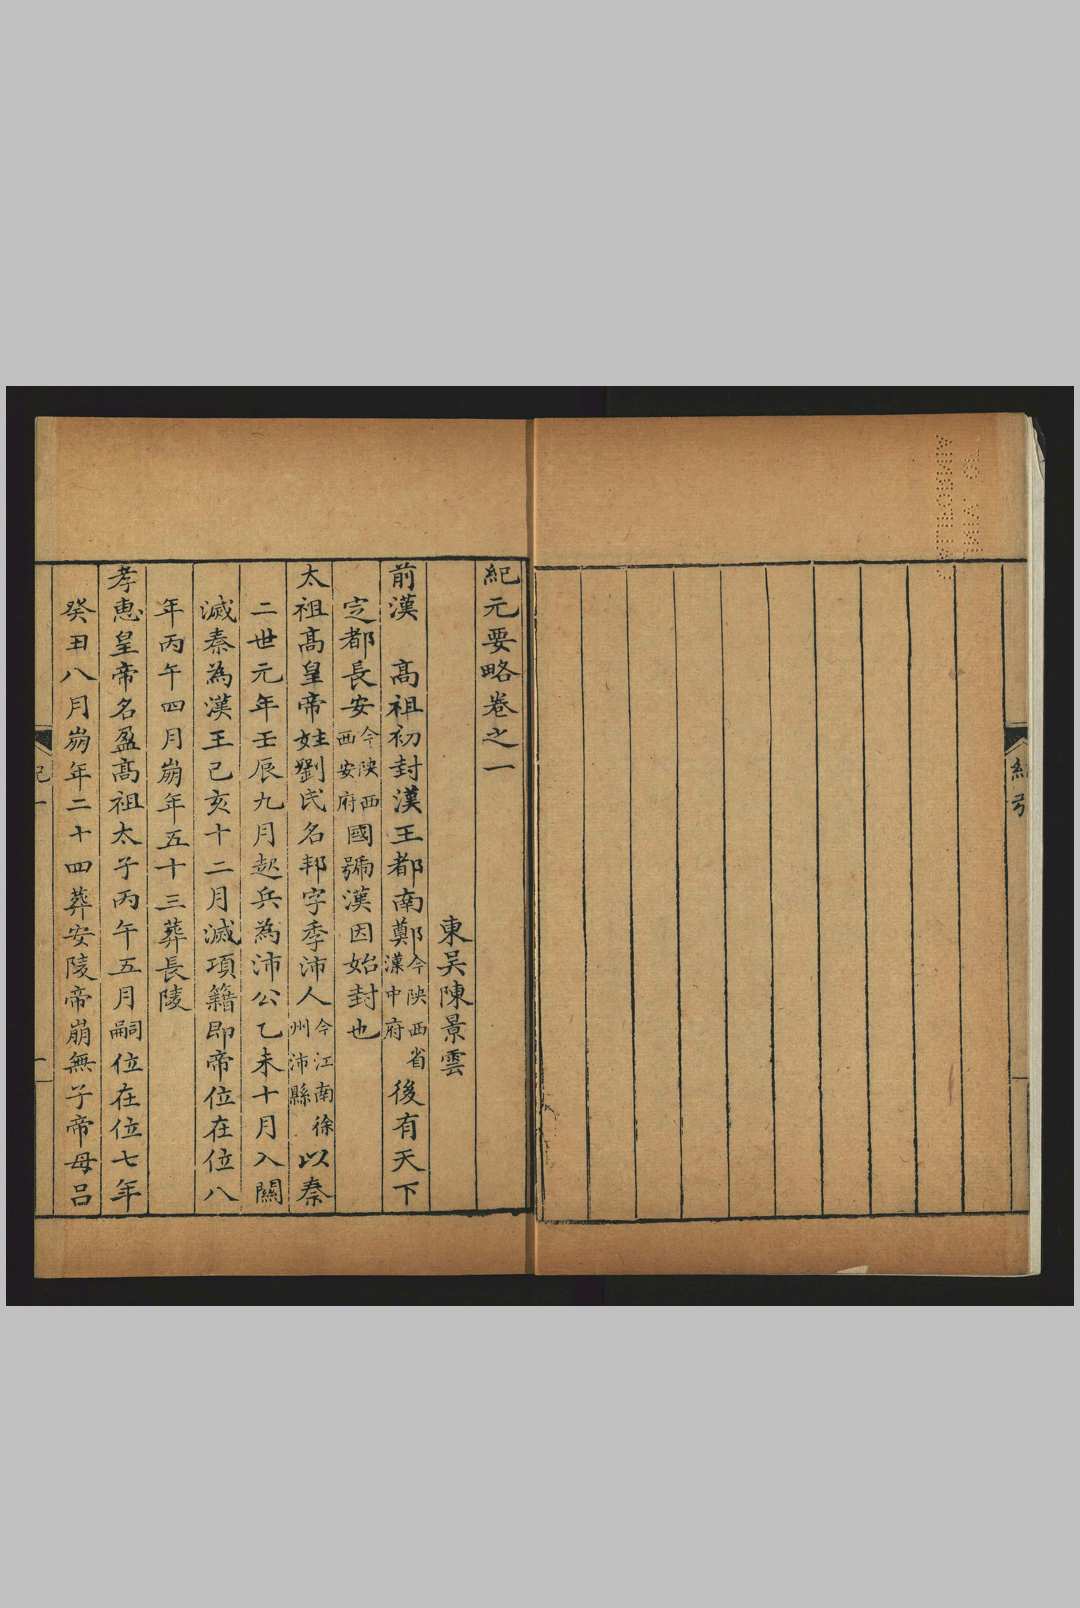 紀元要略卷之一
東吴陳景雲
前漢 高祖初封漢王都南鄭今陜西省漢中府後有天下
定都長安今陜西西安府國號漢因始封也
太祖高皇帝姓劉氏名邦字季沛人今江南徐州沛縣以秦
二世元年壬辰九月起兵為沛公乙未十月入關
滅秦為漢王己亥十二月滅項籍即帝位在位八
年丙午四月崩年五十三葬長陵
孝惠皇帝名盈高祖太子丙午五月嗣位在位七年
癸丑八月崩年二十四葬安陵帝崩無子帝母吕